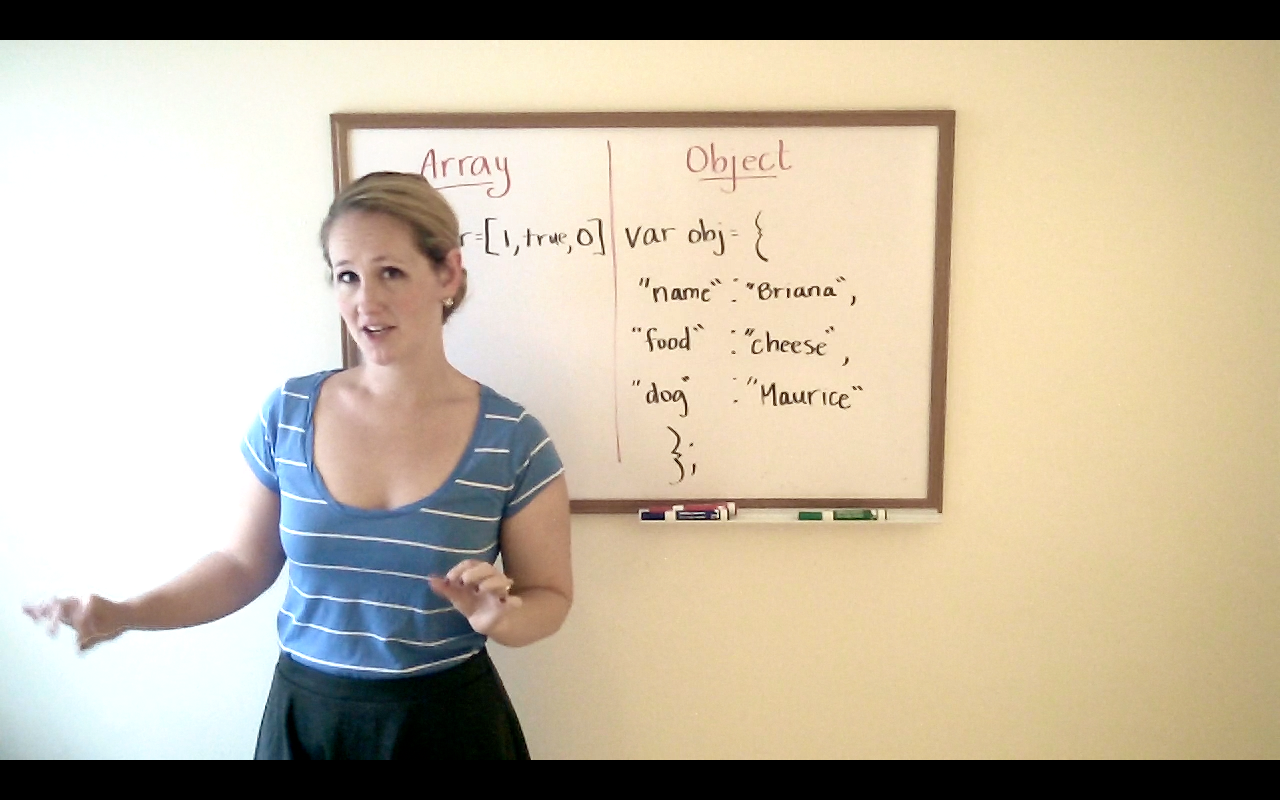 Array
r=[1,true,0]
Object
var obj= {
"name" : "Briana",
"food" : "cheese",
"dog" : "Maurice"
};